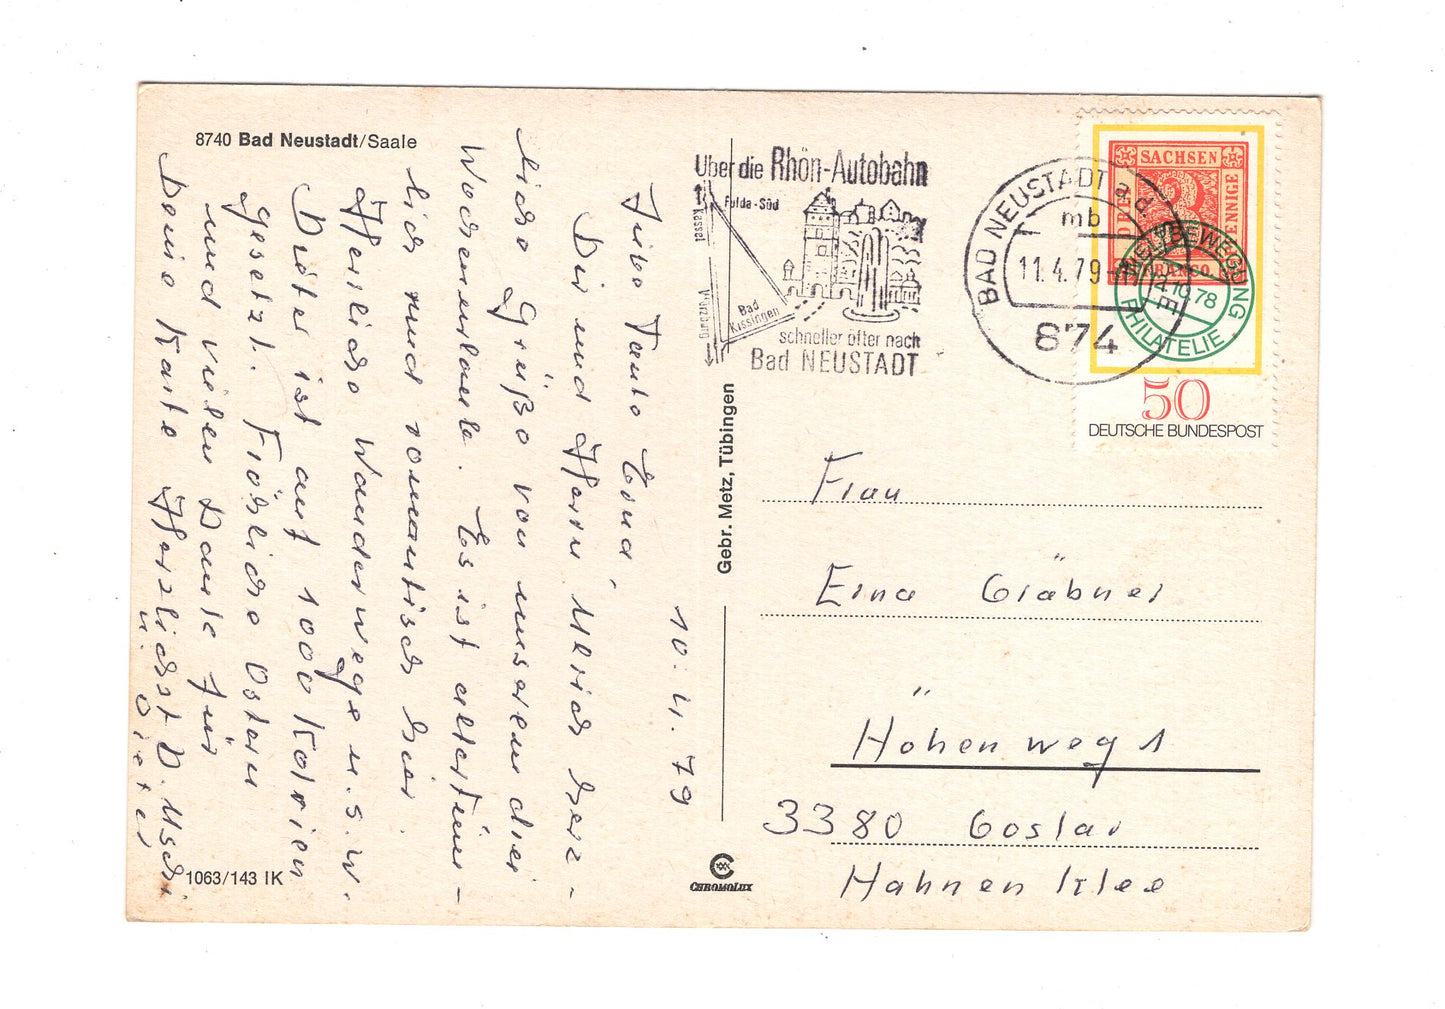 8740 Bad Neustadt/Saale
10.4.79
Liebe Tante Erna,
Dir und Herrn Ulrich herz-
liche Grüße von unserem drei
Wochenurlaub. Es ist altertüm-
lich und romantisch hier.
Herrliche Wanderwege u.s.w.
Dieter ist auf 1000 Kalorien
gesetzt. Fröhliche Ostern
und vielen Dank für
Deine Karte Herzlichst D. Uschi
u. Dieter
1063/143 IK
Gebr. Metz, Tübingen
CHROMOLUX
Über die Rhön-Autobahn
Fulda-Süd
Kassel
Würzburg
Bad
Kissingen
schneller öfter nach
Bad NEUSTADT
BAD NEUSTADT a.d.
mb
11.4.79
874
SACHSEN
DREI
PFENNIGE
FRANCO
3
WELTBEWEGUNG
PHILATELIE
50
DEUTSCHE BUNDESPOST
Frau
Erna Gräbner
Höhenweg 1
3380 Goslar
Hahnenklee